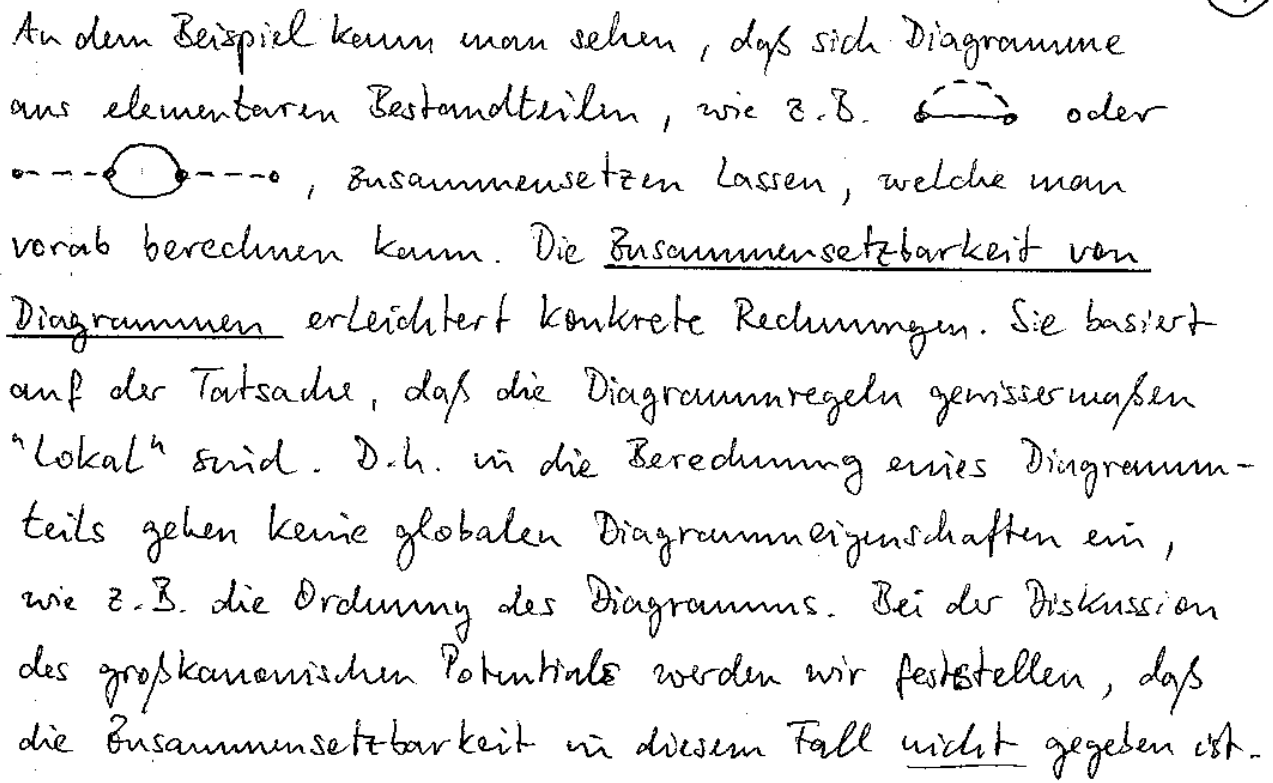 An dem Beispiel kann man sehen, daß sich Diagramme
aus elementaren Bestandteilen, wie z.B. oder
, zusammensetzen lassen, welche man
vorab berechnen kann. Die Zusammensetzbarkeit von
Diagrammen erleichtert konkrete Rechnungen. Sie basiert
auf der Tatsache, daß die Diagrammregeln gewissermaßen
"lokal" sind. D.h. in die Berechnung eines Diagramm-
teils gehen keine globalen Diagrammeigenschaften ein,
wie z.B. die Ordnung des Diagramms. Bei der Diskussion
des großkanonischen Potentials werden wir feststellen, daß
die Zusammensetzbarkeit in diesem Fall nicht gegeben ist.